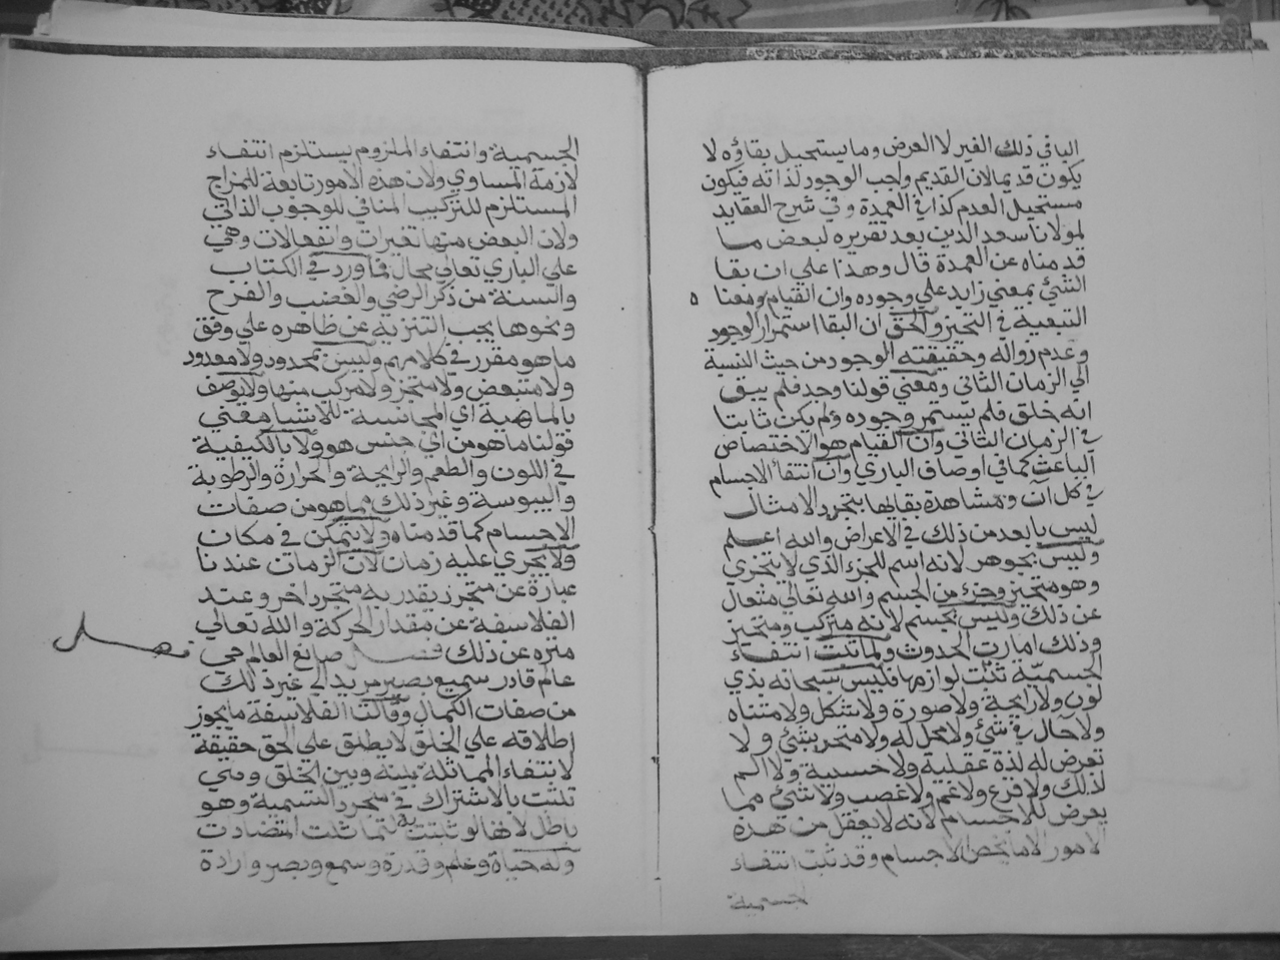 الباقي ذلك الغير لا العرض وما يستحيل بقاؤه لا
يكون قديما لان القديم واجب الوجود لذاته فيكون
مستحيل العدم كذا في العمدة وفي شرح العقايد
لمولانا سعد الدين بعد تقريره لبعض ما
قدمناه عن العمدة قال وهذا علي ان بقا
الشئ بمعني زايد علي وجوده وان القيام ومعنا ه
التبعية في التحيز والحق ان البقا استمرار الوجود
وعدم زواله وحقيقته الوجود من حيث النسبة
الي الزمان الثاني ومعني قولنا وجد فلم يبق
انه خلق فلم يستمر وجوده ولم يكن ثابتا
في الزمان الثاني وان القيام هو الاختصاص
الباعث كما في اوصاف الباري وان انتفأ الاجسام
في كل ان ومشاهدة بقايها بتجدد الامثال
ليس بابعد من ذلك في الاعراض والله اعلم
وليس بجوهر لانه اسم للجزء الذي لا يتجزي
وهو متحيز وجزء من الجسم والله تعالي متعال
عن ذلك وليس بجسم لانه متركب ومتحيز
وذلك امارت الحدوث ولما ثبت انتفاء
الجسميّة ثبت لوازمها فليس سبحانه بذي
لون ولا رايحة ولا صورة ولا شكل ولا متناه
ولا حال في شئ ولا محل له ولا متحد بشئ ولا
تعرض له لذة عقلية ولا حسية ولا الم
لذلك ولا فرع ولا غم ولا غصب ولا شئ مما
يعرض للاجسام لانه لا يعقل من هذه
الامور الا ما يخص الاجسام وقد ثبت انتفاء
لجسمية
الجسمية وانتفاء الملزوم يستلزم انتفاء
لازمة المساوي ولان هذه الامور تابعة للمزاج
المستلزم للتركيب المنافي للوجوب الذاتي
ولان البعض منها تغيرات وانفعالات وهي
علي الباري تعالي محال فما ورد في الكتاب
والسنة من ذكر الرضي والغضب والفرح
ونحوها يجب التنزيه عن ظاهره علي وفق
ما هو مقرر في كلامهم وليس بمحدود ولا معدود
ولا متبعض ولا متجز ولا مركب منها ولا يوصف
بالماهية اي المجانسة للاشيا معني
قولنا ما هو من اي جنس هو ولا بالكيفية
في اللون والطعم والرايحة والحرارة والرطوبة
واليبوسة وغير ذلك مما هو من صفات
الاجسام كما قدمناه ولا يتمكن في مكان
ولا يجري عليه زمان لان الزمان عندنا
عبارة عن متجدد يقدر به متجدد اخر وعند
الفلاسفة عن مقدار الحركة والله تعالي
منزه عن ذلك فصل صانع العالم حي
فصل
عالم قادر سميع بصير مريد الي غير ذلك
من صفات الكمال وقالت الفلاسفة ما يجوز
اطلاقه علي الخلق لا يطلق علي الحق حقيقة
لانتفاء المماثلة بينه وبين الخلق وهي
تثبت بالاشتراك في مجرد التسمية وهو
باطل لانها لو ثبتت به لتماثلت المتضادت
وله حياة وعلم وقدرة وسمع وبصر وارادة